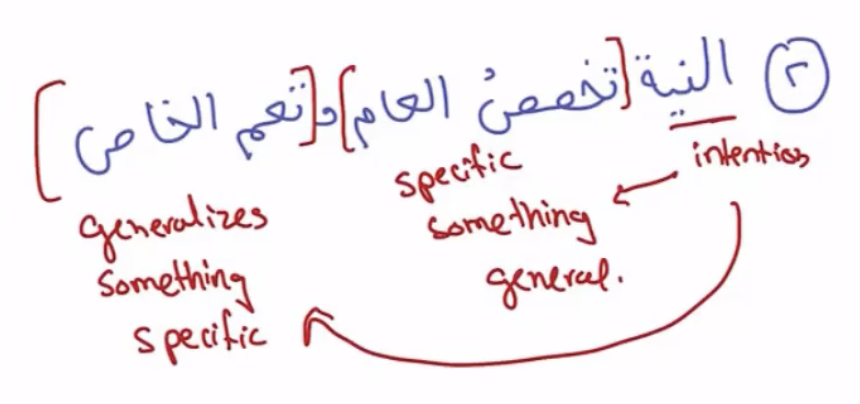 ٢ النية [تخصصُ العام] و [تعمم الخاص]
intention
specific
something
general.
generalizes
something
specific